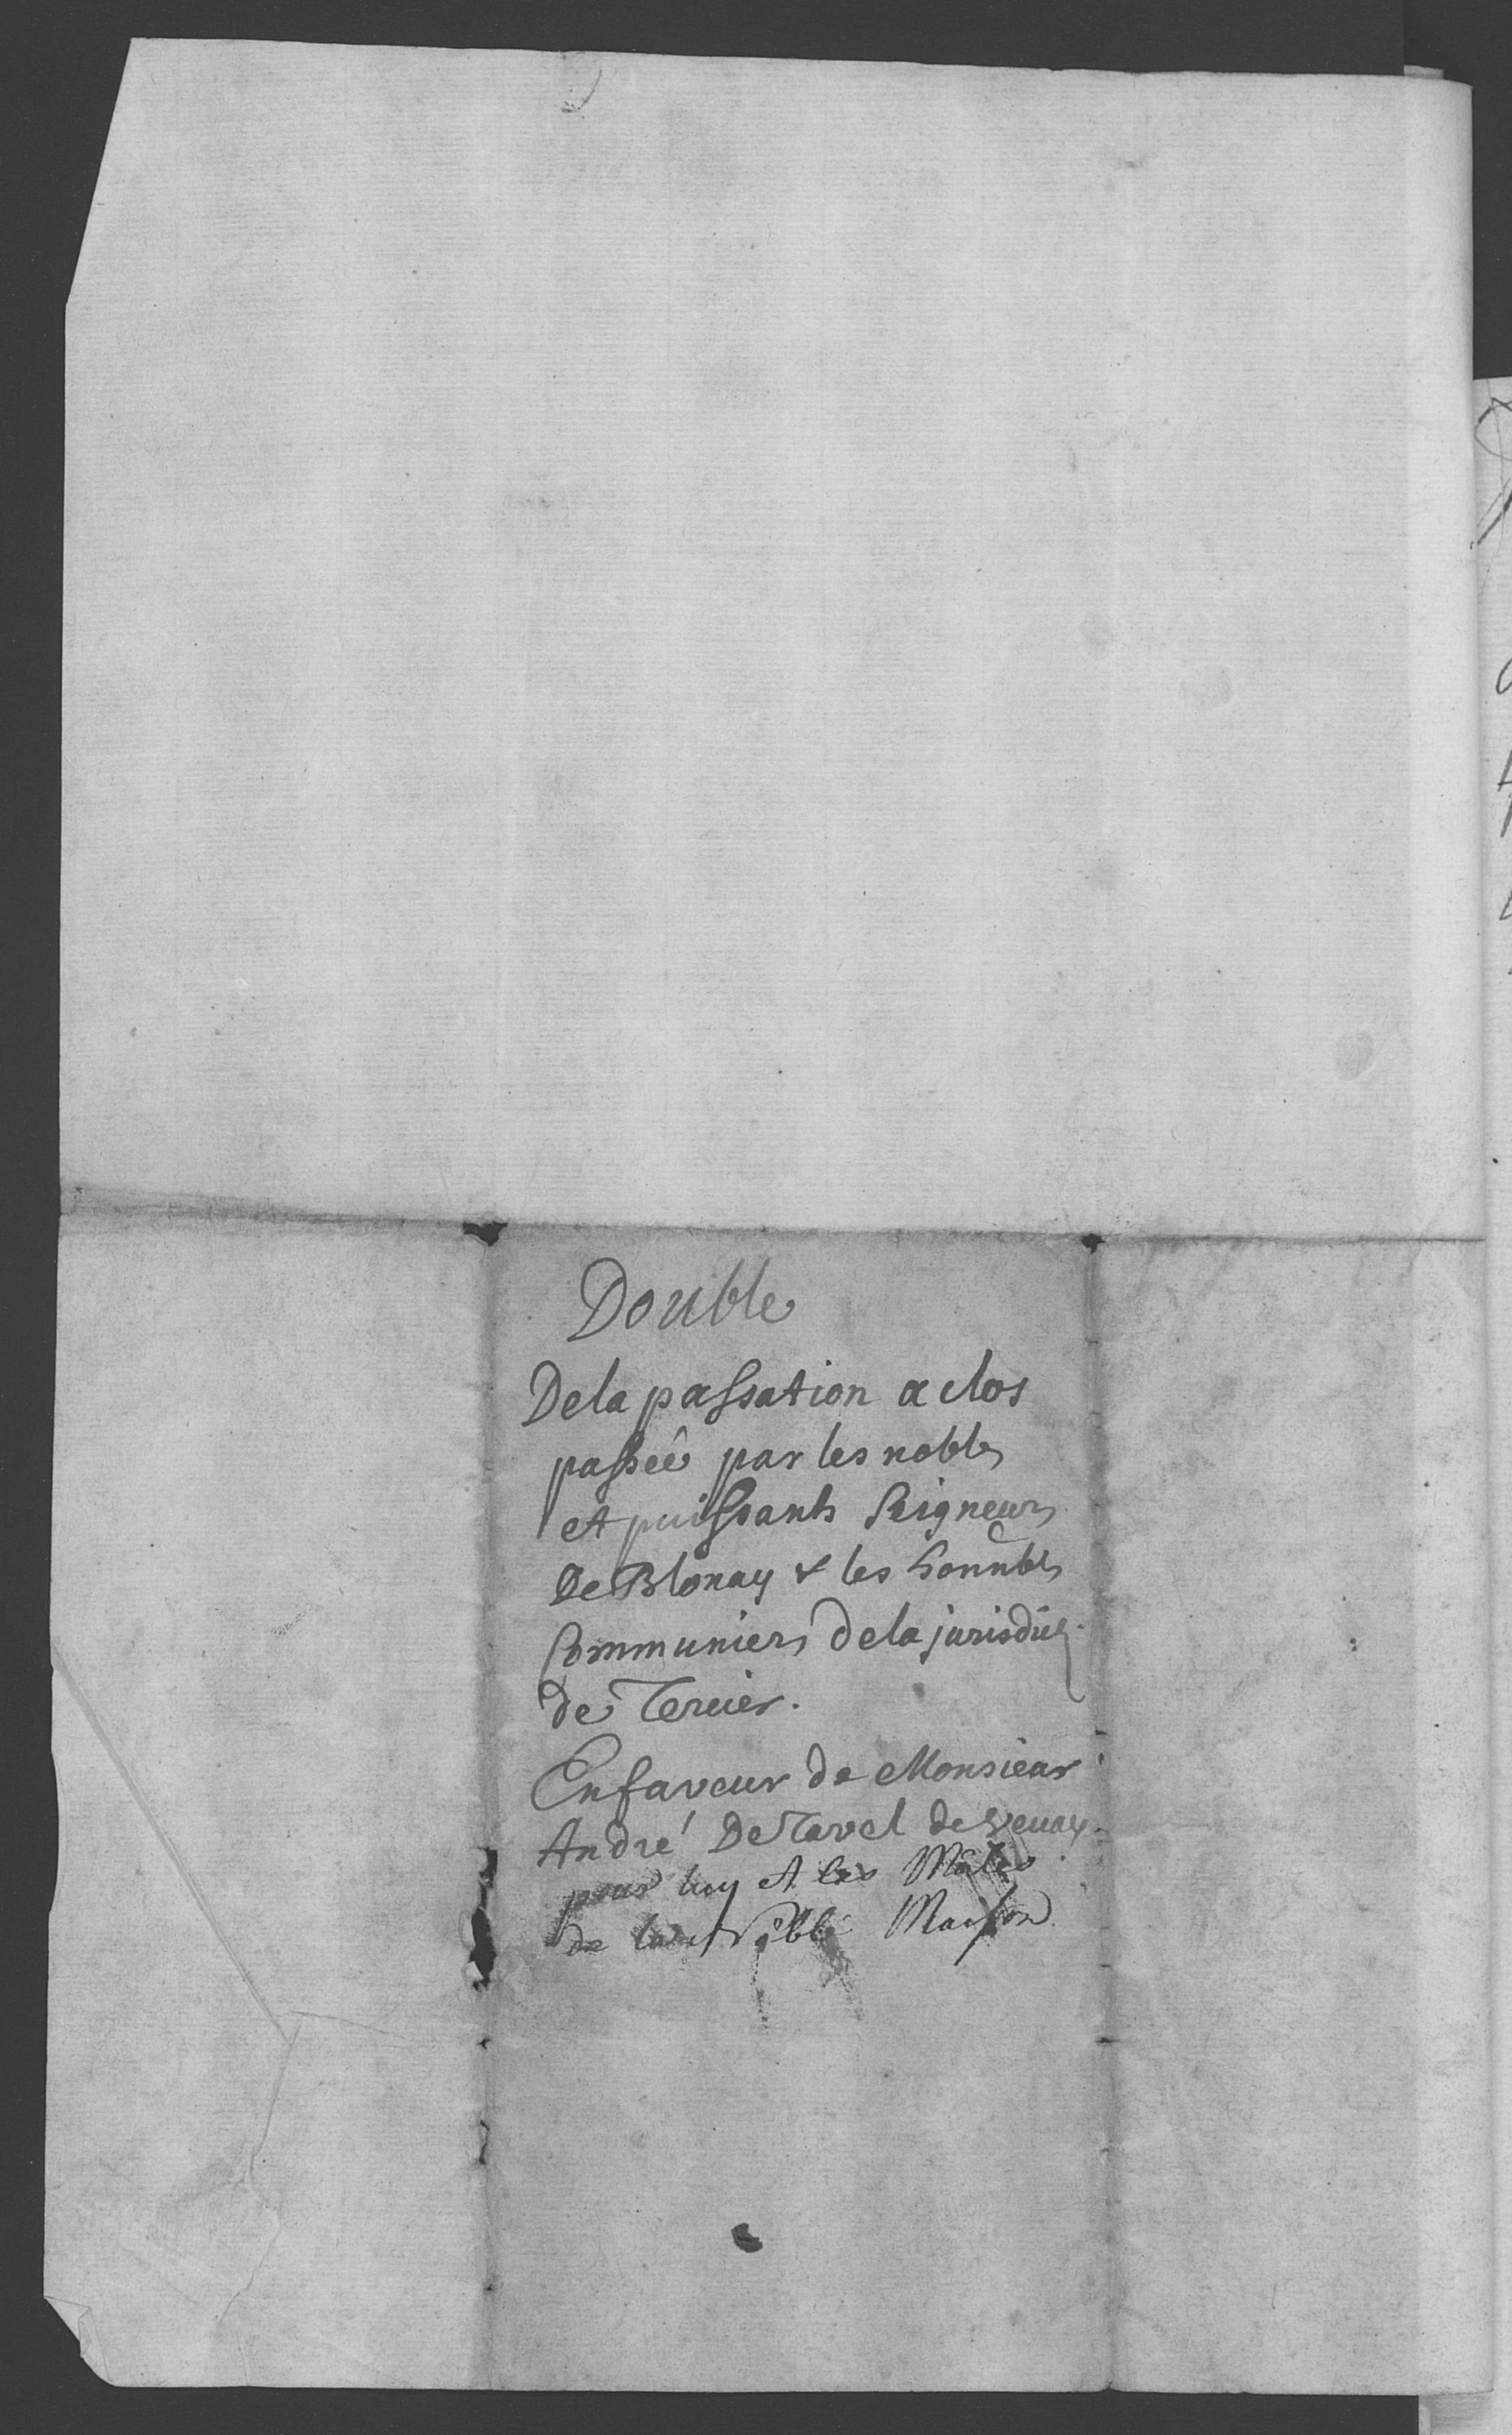 Double
De la passation a clos
passéê par les nobles
et puissants Seigneurs
De Blonay & les honnbls
Communiers de la jurisdict.
de Tercier.
En faveur de Monsieur
André De Tavel de Vevay
pour luy et les Mâles
de Noble Maison